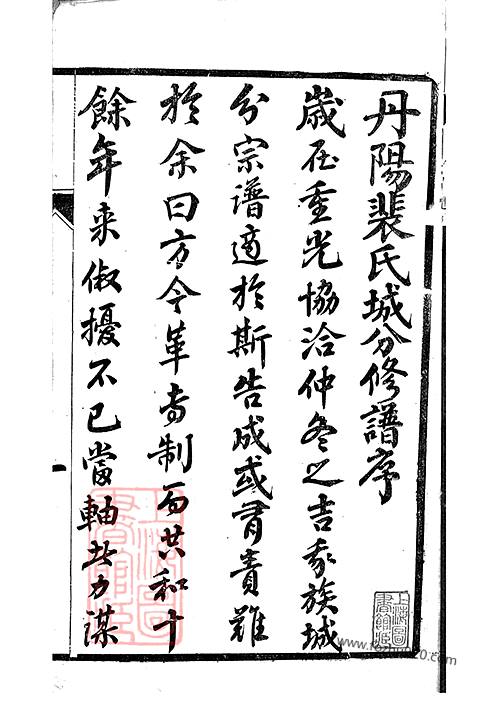 丹陽裴氏城分修譜序
歳在重光協洽仲冬之吉我族城
分宗譜適於斯告成或有責難
於余曰方今革専制而共和十
餘年来俶擾不已當軸者力謀
上海圖書館藏
上海圖書館藏